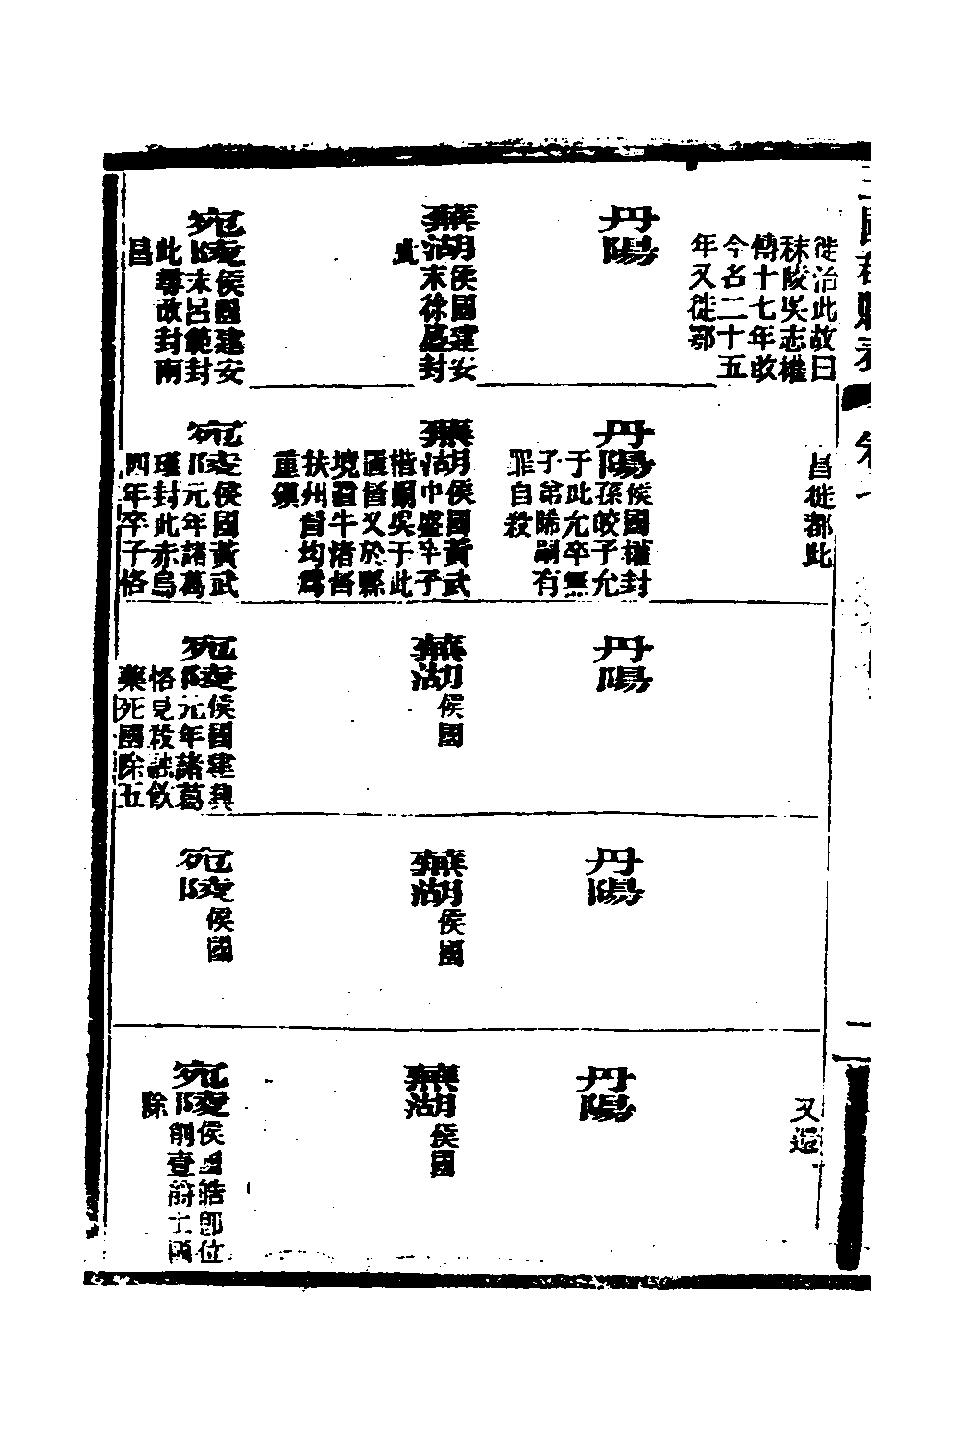 三國郡縣表 卷七
徙治此故曰
秣陵吳志權
傳十七年改
今名二十五
年又徙鄂
丹陽
蕪湖侯國建安
末徐盛封
此
宛陵侯國建安
末呂範封
此尋改封南
昌
昌徙都此
丹陽侯國權封
孫皎子允
于此允卒無
子弟晞嗣有
罪自殺
蕪湖侯國黃武
中盛卒子
楷嗣吳于此
置督又於縣
境置牛渚督
扶州督均爲
重鎮
宛陵侯國黃武
元年諸葛
瑾封此赤烏
四年卒子恪
丹陽
蕪湖侯國
宛陵侯國建興
元年諸葛
恪見殺融飲
藥死國除五
丹陽
蕪湖侯國
宛陵侯國
又還
丹陽
蕪湖侯國
宛陵侯國皓卽位
削壹爵土國
除